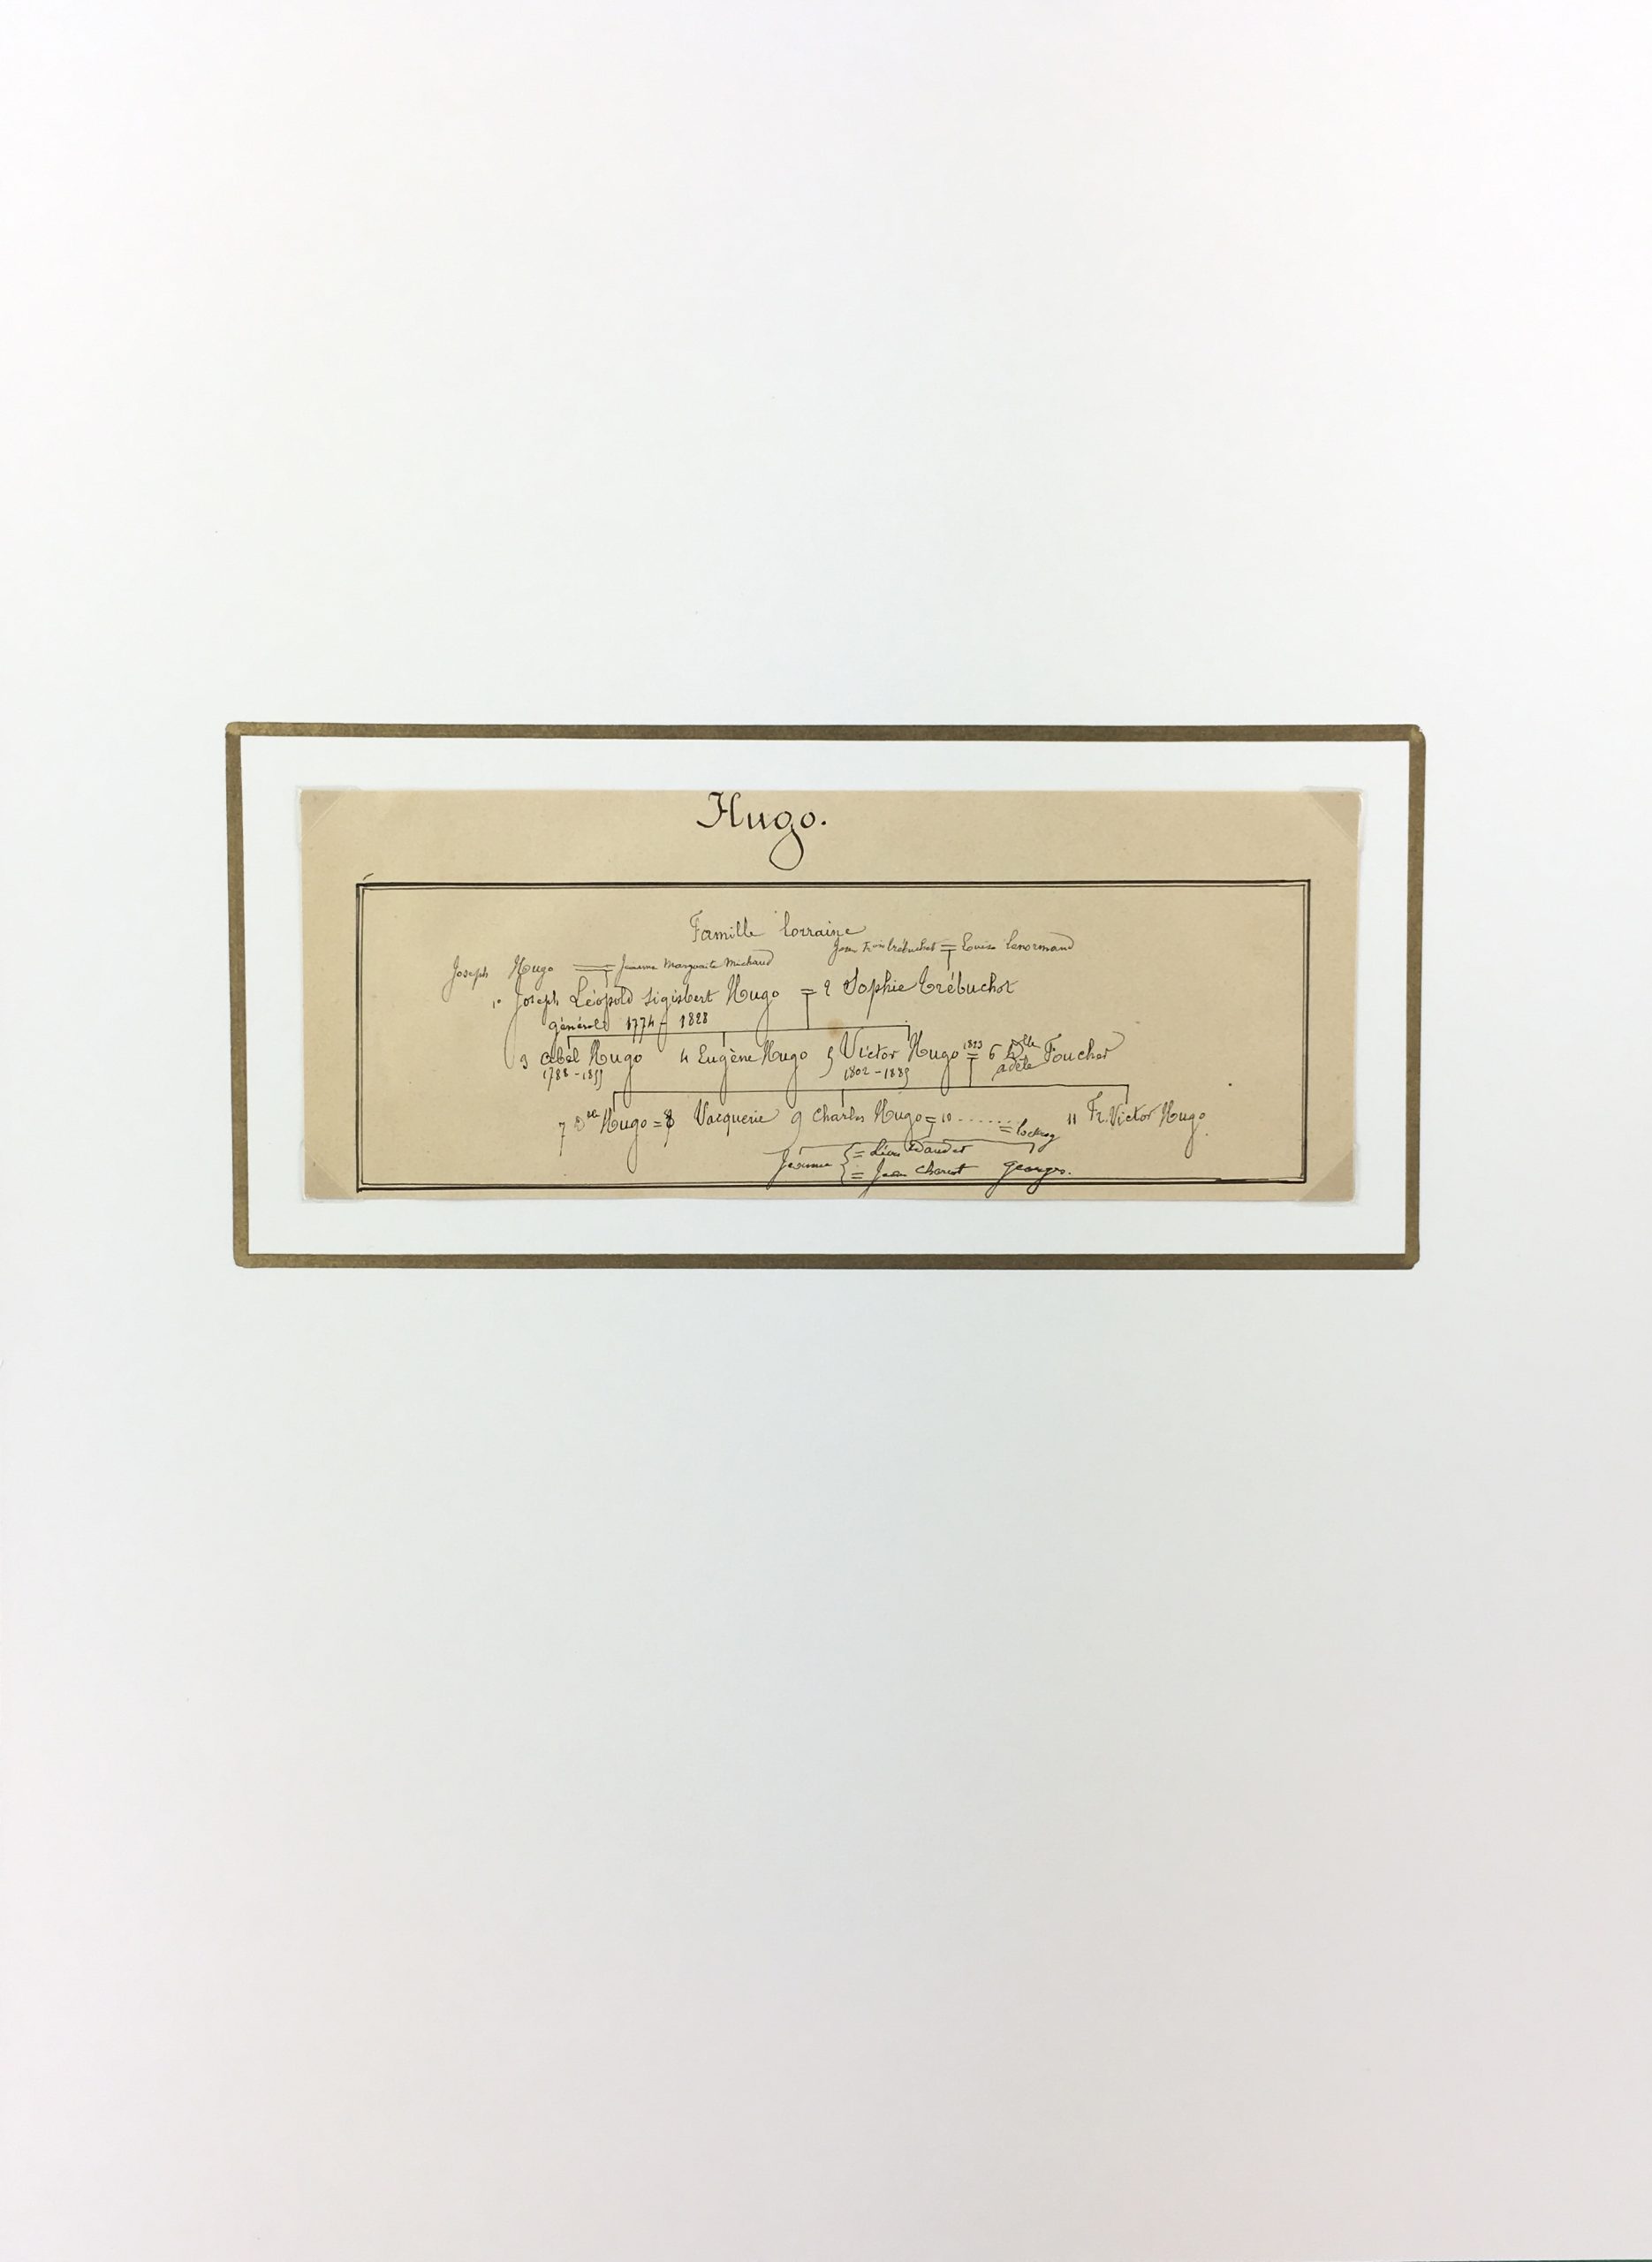 Hugo.
Famille lorraine
Jean Fois Trébuchet = Louise Lenormand
Joseph Hugo = Jeanne Marguerite Michaud
1º Joseph Léopold Sigisbert Hugo = 2 Sophie Trébuchet
général 1774 - 1828
3 Abel Hugo 4 Eugène Hugo 5 Victor Hugo 1823 = 6 Dlle Adèle Foucher
1788 - 1855 1802 - 1885
7 Dlle Hugo = 8 Vacquerie 9 Charles Hugo = 10 ....... = Lockroy 11 Fr. Victor Hugo.
Jeanne { = Léon Daudet
= Jean Charcot Georges.